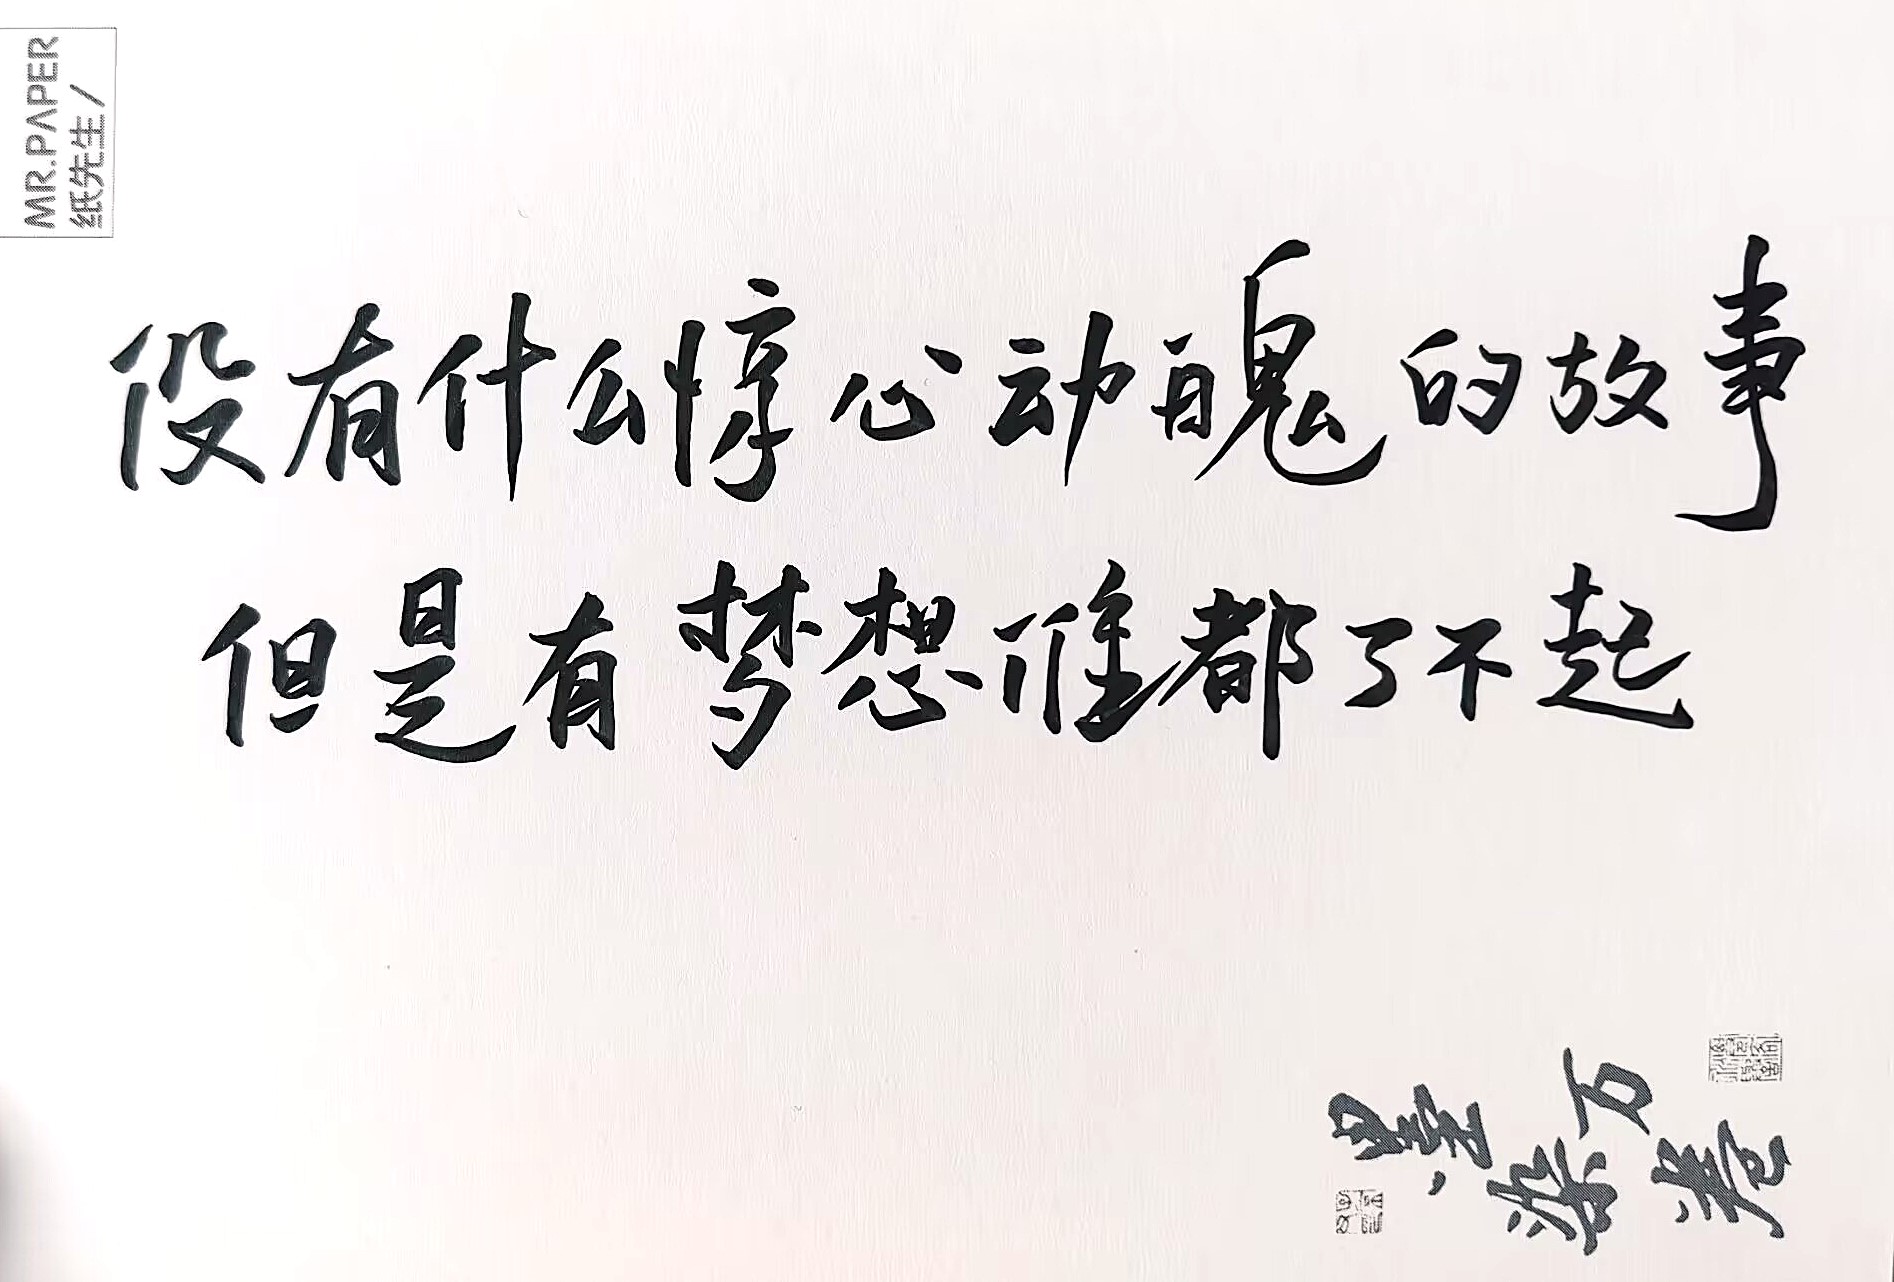 MR.PAPER
纸先生/
没有什么惊心动魄的故事
但是有梦想谁都了不起